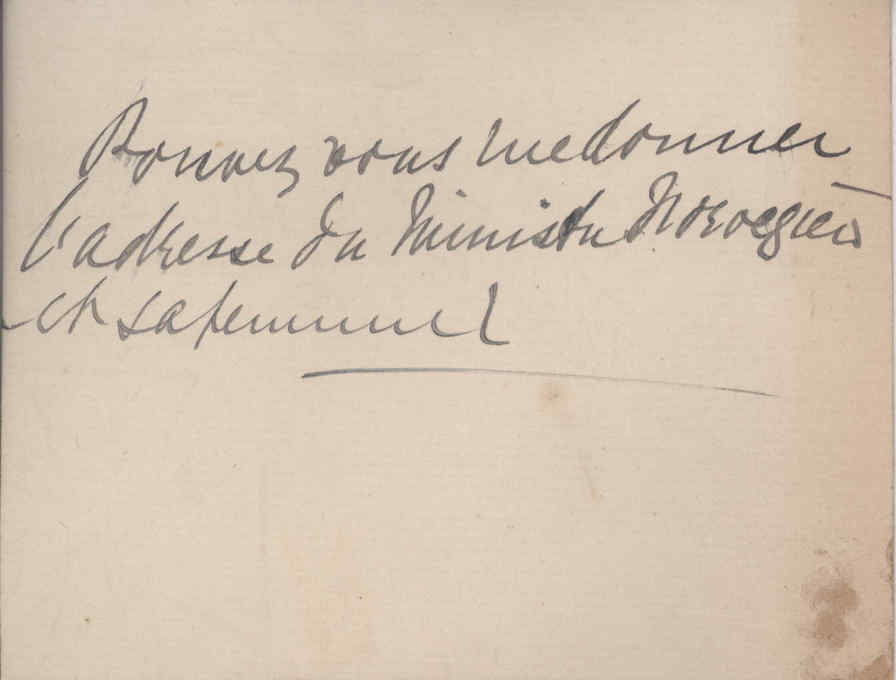 Pouvez vous me donner
l'adresse du Ministre Norvegien
et sa femme